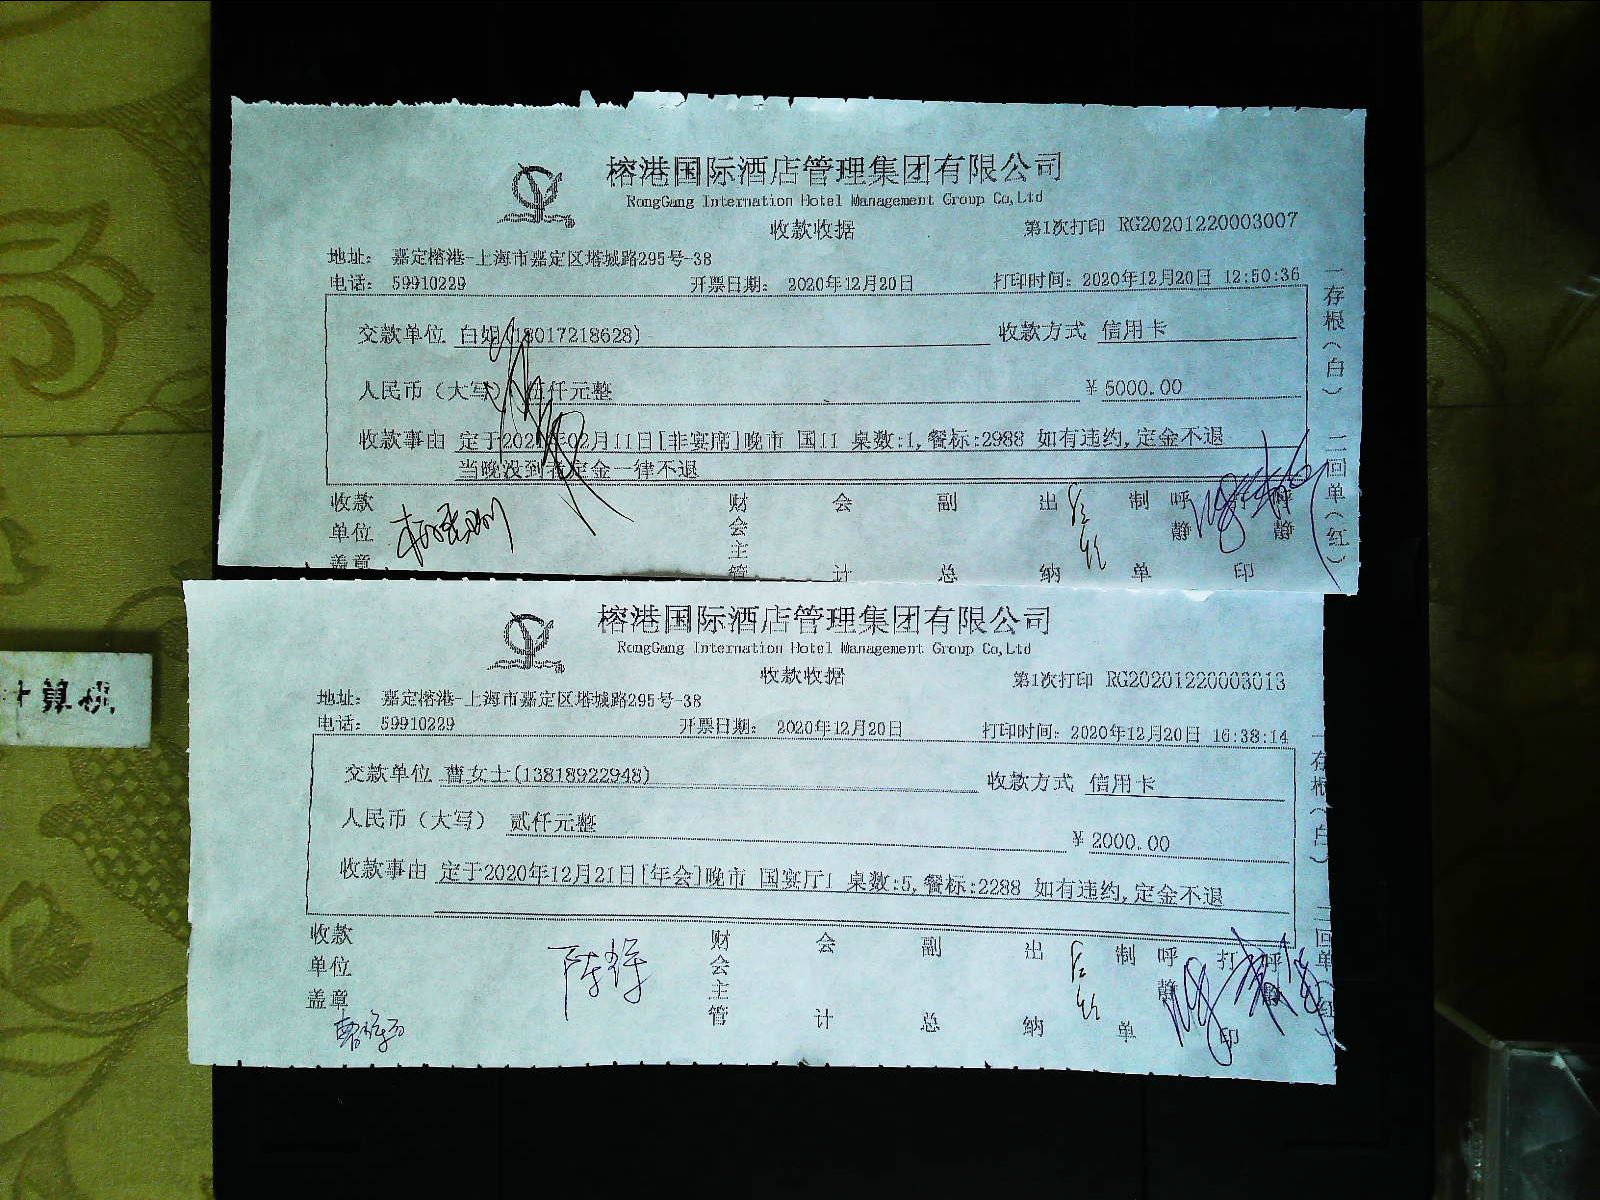 榕港国际酒店管理集团有限公司
RongGang Internation Hotel Management Group Co,Ltd
收款收据
第1次打印 RG20201220003007
地址： 嘉定榕港-上海市嘉定区塔城路295号-38
电话： 59910229 开票日期： 2020年12月20日 打印时间：2020年12月20日 12:50:36
交款单位 白姐(18017218628) 收款方式 信用卡
人民币（大写） 伍仟元整 ￥5000.00
收款事由 定于2021年02月11日[非宴席]晚市 国11 桌数:1,餐标:2988 如有违约,定金不退
当晚没到者定金一律不退
收款单位盖章 财会主管 会计 副总 出纳 制单 呼静 打印 呼静
一存根（白） 二回单（红）
榕港国际酒店管理集团有限公司
RongGang Internation Hotel Management Group Co,Ltd
收款收据
第1次打印 RG20201220003013
地址： 嘉定榕港-上海市嘉定区塔城路295号-38
电话： 59910229 开票日期： 2020年12月20日 打印时间：2020年12月20日 16:38:14
交款单位 曹女士(13818922948) 收款方式 信用卡
人民币（大写） 贰仟元整 ￥2000.00
收款事由 定于2020年12月21日[年会]晚市 国宴厅1 桌数:5,餐标:2288 如有违约,定金不退
收款单位盖章 财会主管 会计 副总 出纳 制单 呼静 打印 呼静
一存根（白） 二回单（红）
计算机